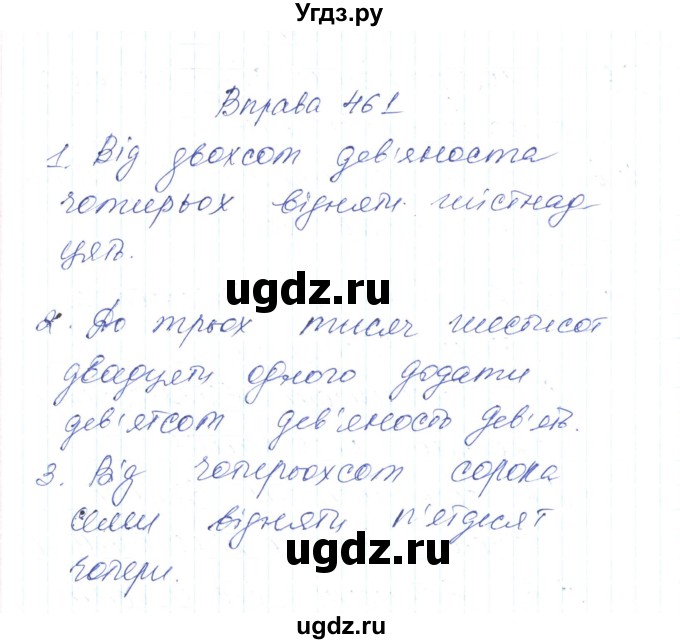 Угдз.ру
Вправа 461
1. Від двохсот дев'яноста
чотирьох відняти шістнад-
цять.
ugdz.ru
2. До трьох тисяч шестисот
двадцяти одного додати
дев'ятсот дев'яность дев'ять.
3. Від чотирьохсот сорока
семи відняти п'ятдесят
ugdz.ru
чотери.
ugdz.ru